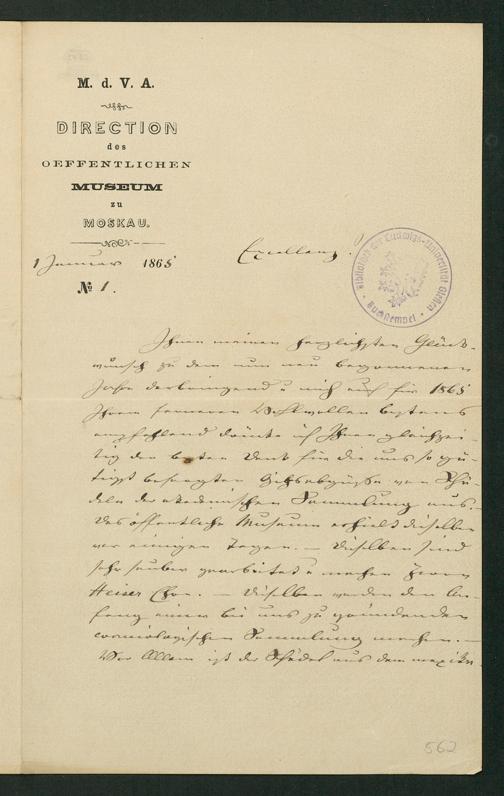 M. d. V. A.
DIRECTION
des
OEFFENTLICHEN
MUSEUM
zu
MOSKAU.
1 Januar 1865
№ 1.
Excellenz!
Bibliothek der Ludwigs-Universität Gießen
Buchstempel
Ihnen meinen herzlichsten Glück-
wunsch zu dem nun neu begonnenen
Jahre darbringend u mich auch für 1865
Ihrem ferneren Wohlwollen bestens
empfehlend danke ich Ihnen gleichzei-
tig den besten Dank für die uns so gü-
tigst besorgten Gipsabgüsse von Schä-
deln der akademischen Sammlung aus.
Das öffentliche Museum erhielt dieselben
vor einigen Tagen. — Dieselben sind
sehr sauber gearbeitet u machen Herrn
Heiser Ehre. — Dieselben werden den An-
fang einer bei uns zu gründenden
craniologischen Sammlung machen. —
Vor Allem ist der Schädel aus dem
562